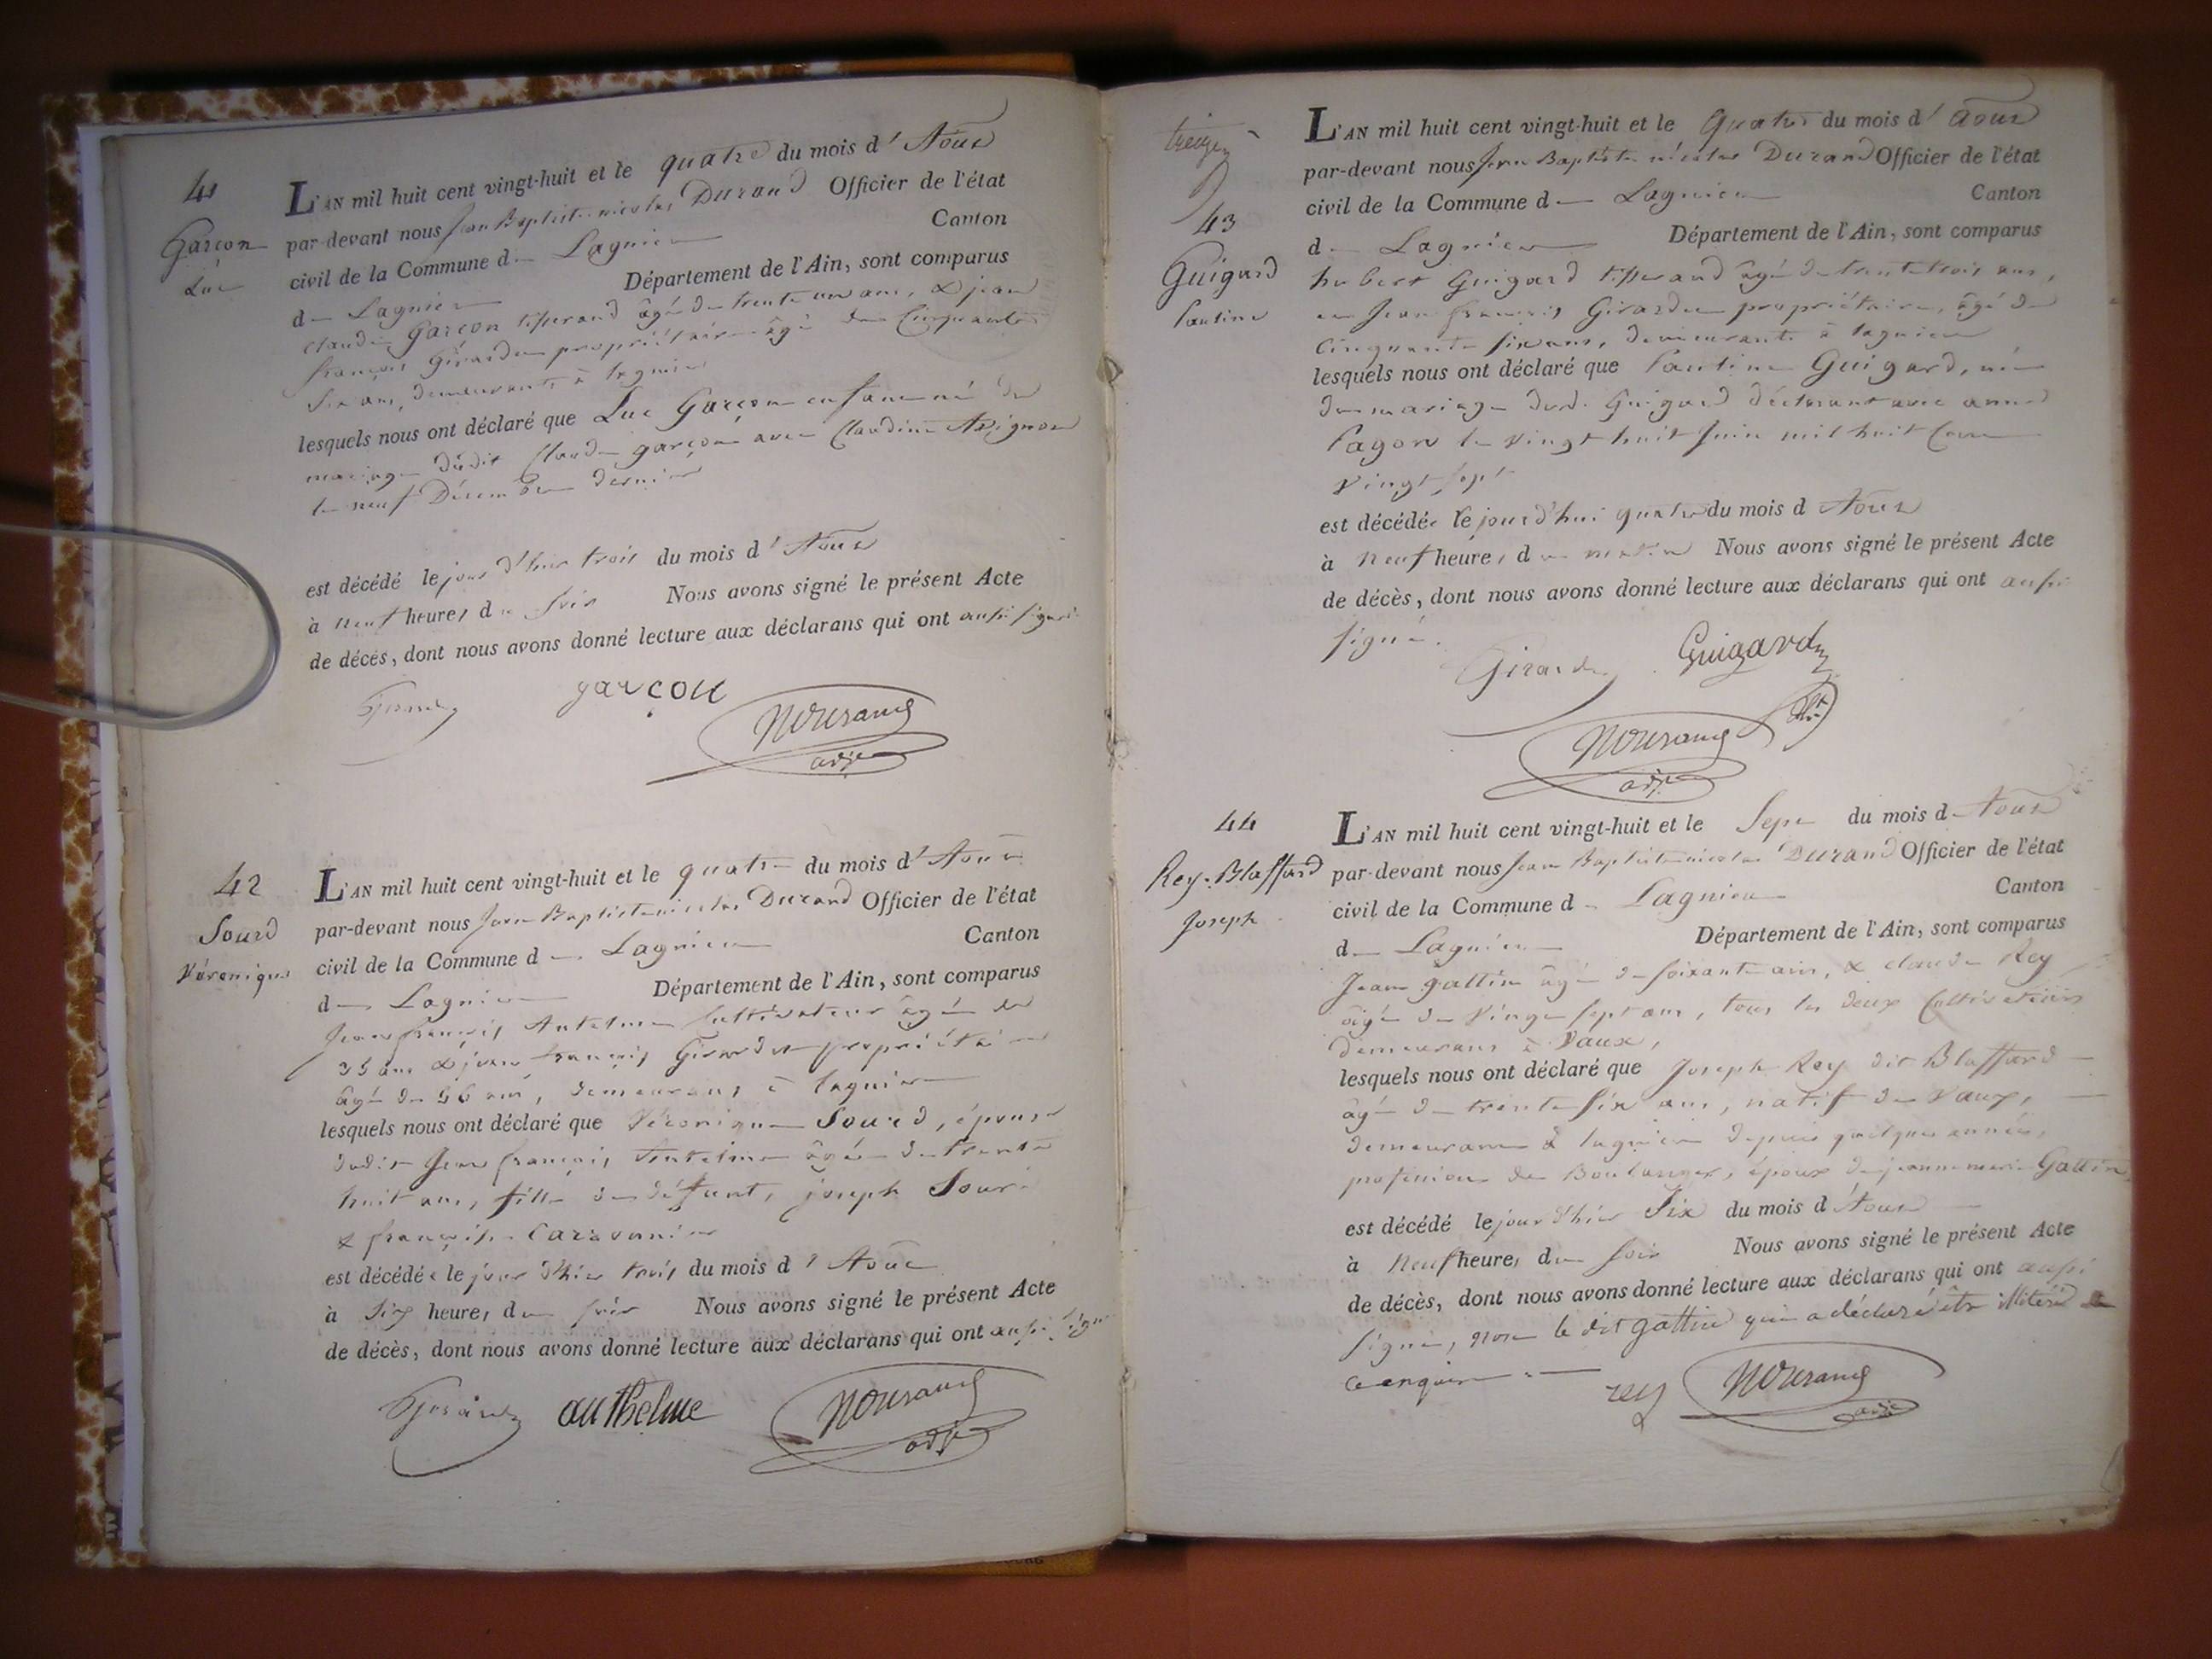 41
Garçon
Luc
L'AN mil huit cent vingt-huit et le quatre du mois d' Aout
par-devant nous Jean Baptiste nicolas Durand Officier de l'état
civil de la Commune d Lagnieu Canton
d Lagnieu Département de l'Ain, sont comparus
claude Garçon tisserand âgé de trente un ans, & jean
françois Girardet propriétaire âgé de Cinquante
Six ans, demeurants à lagnieu
lesquels nous ont déclaré que Luc Garçon enfant né du
mariage dudit Claude garçon avec Claudine Avignon
le neuf Décembre dernier
est décédé le jour d'hier trois du mois d' Aout
à neuf heures du soir Nous avons signé le présent Acte
de décès, dont nous avons donné lecture aux déclarans qui ont aussi signé.
garçon
NDurand
adj
42
Sourd
Véronique
L'AN mil huit cent vingt-huit et le quatre du mois d' Aout
par-devant nous Jean Baptiste nicolas Durand Officier de l'état
civil de la Commune d Lagnieu Canton
d Lagnieu Département de l'Ain, sont comparus
Jean françois Antelme Cultivateur âgé de
35 ans & jean françois Girardet propriétaire
âgé de 56 ans, demeurans à lagnieu
lesquels nous ont déclaré que Véronique Sourd, épouse
dudit Jean françois Antelme âgée de trente
huit ans, fille de défunt, joseph Sourd
& françoise
est décédée le jour d'hier trois du mois d' Aout
à Six heures du soir Nous avons signé le présent Acte
de décès, dont nous avons donné lecture aux déclarans qui ont aussi signé
authelme
NDurand
adj
43
Guigard
L'AN mil huit cent vingt-huit et le Quatre du mois d' aout
par-devant nous Jean Baptiste nicolas Durand Officier de l'état
civil de la Commune d Lagnieu Canton
d Lagnieu Département de l'Ain, sont comparus
hubert Guigard tisserand âgé de trente trois ans,
et Jean françois Girardet propriétaire, âgé de
Cinquante six ans, demeurants à lagnieu
lesquels nous ont déclaré que Guigard, née
du mariage dud. Guigard déclarant avec anne
le vingt huit Juin mil huit Cent
vingt sept
est décédée le jourd'hui quatre du mois d Aout
à neuf heures du matin Nous avons signé le présent Acte
de décès, dont nous avons donné lecture aux déclarans qui ont aussi
signé.
Girardet Guigard
NDurand
adj
44
Rey-Blaffard
Joseph
L'AN mil huit cent vingt-huit et le Sept du mois d Aout
par-devant nous Jean Baptiste nicolas Durand Officier de l'état
civil de la Commune d Lagnieu Canton
d Lagnieu Département de l'Ain, sont comparus
Jean gattin âgé de soixante ans, & claude Rey
âgé de vingt sept ans, tous les deux Cultivateurs
demeurans à Vaux,
lesquels nous ont déclaré que Joseph Rey dit Blaffard
âgé de trente six ans, natif de Vaux,
demeurant à lagnieu depuis quelques années,
profession de Boulanger, époux de jeanne marie Gattin
est décédé le jour d'hier Six du mois d Aout
à neuf heures du soir Nous avons signé le présent Acte
de décès, dont nous avons donné lecture aux déclarans qui ont aussi
signé, non le dit gattin qui a déclaré être illitéré
ce enquis.
rey
NDurand
adj